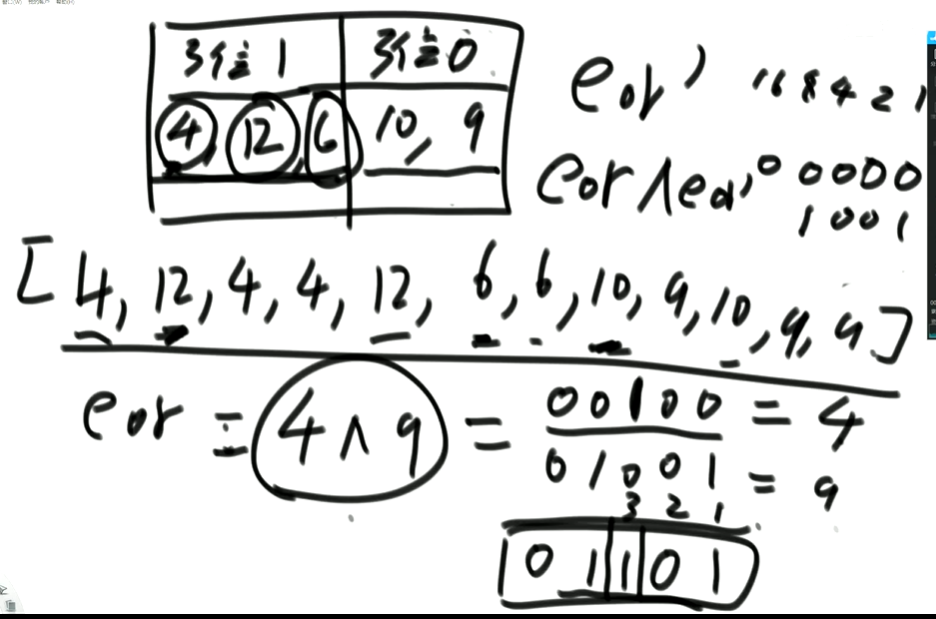 3位是1 3位是0
4, 12, 6 10, 9
eor' 16 8 4 2 1
eor∧eor' 0 0000
1001
[4, 12, 4, 4, 12, 6, 6, 10, 9, 10, 9, 9]
eor = 4∧9 = 00100 = 4
01001 = 9
3 2 1
01101